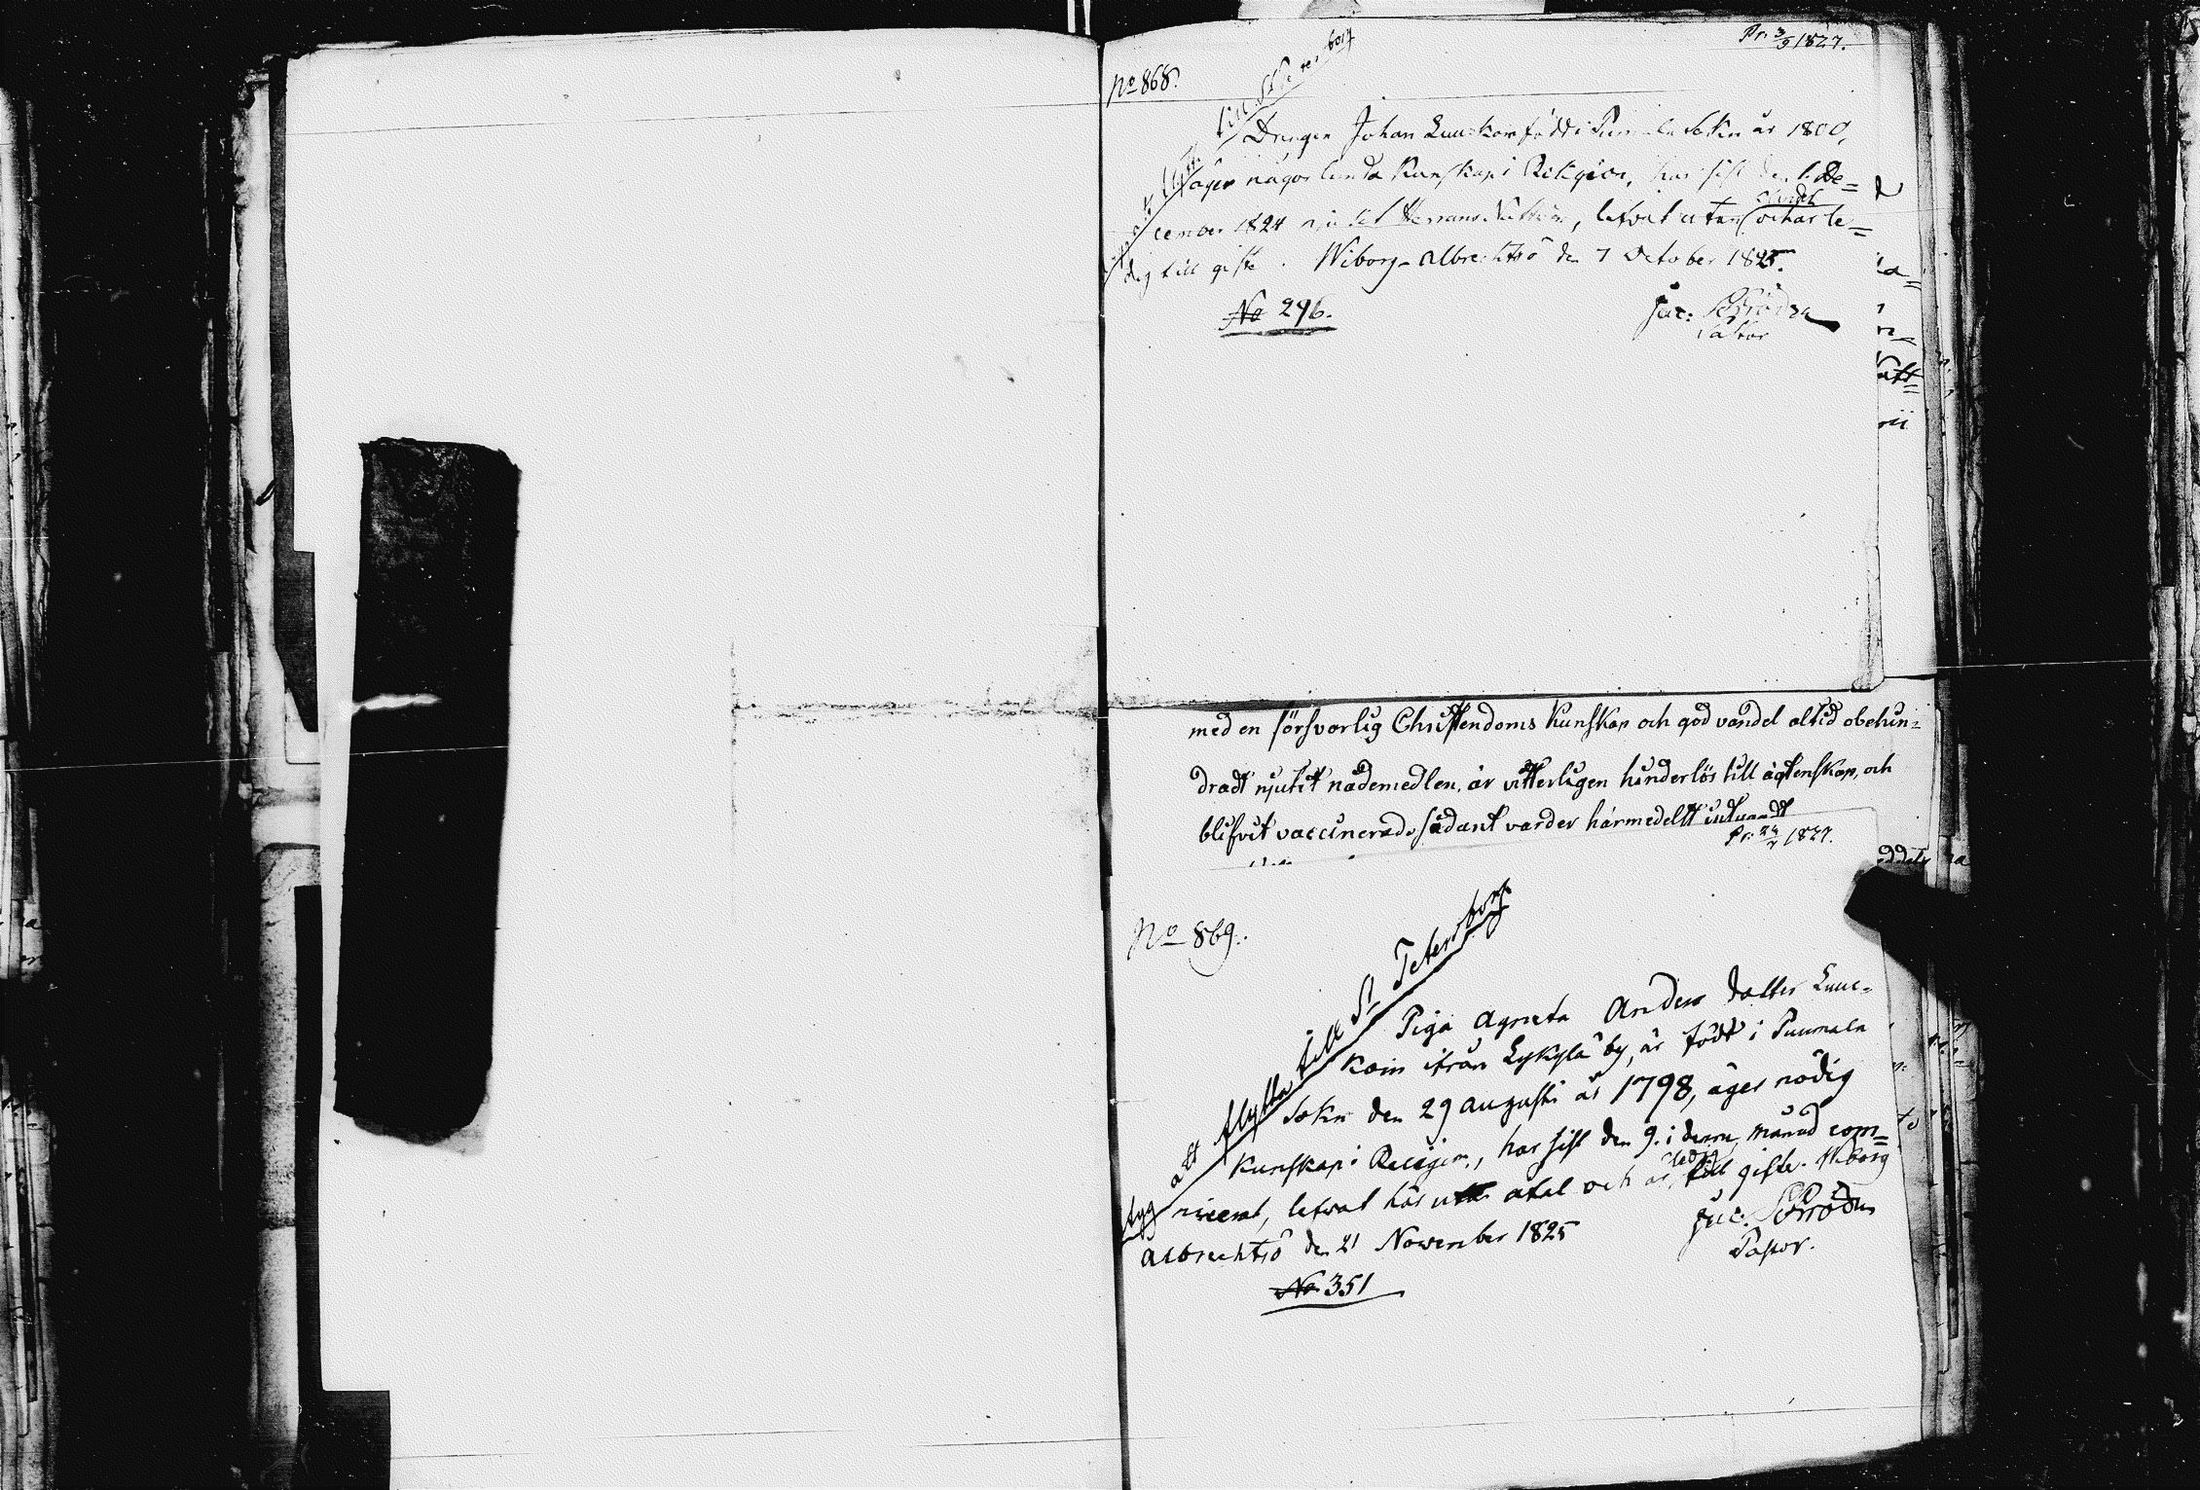 Pr. 3/9 1827.
No 868.
till St Petersborg
Drengen Johan Luukkain född i Puumala Sokn år 1800,
äger någorlunda Kunskap i Religion, har sist den 1. De=
cember 1824 njutit Herrans Nattvard, lefvat utan och är le=
dig till gifte. Wiborg-Albrechtsö den 7 October 1825.
No 296.
Jac: Schröder
Pastor
med en försvarlig Christendoms kunskap och god vandel altid obehin=
dradt njutit nådemedlen, är vitterligen hinderlös till ägtenskap, och
blifvit vaccinerad, sådant varder härmedelst
Pr. 24/7 1827.
No 869.
att flytta till St Petersborg
Piga Agneta Anders dotter Luuc=
kain ifrån Lykylä by, är född i Puumala
Sokn den 29 Augusti år 1798, äger nödig
Kunskap i Religion, har sist den 9. i denna månad com=
nicerat, lefvat här utan atal och är ledig till gifte. Wiborg
Albrechtsö den 21 November 1825
Jac. Schröder
Pastor.
No 351